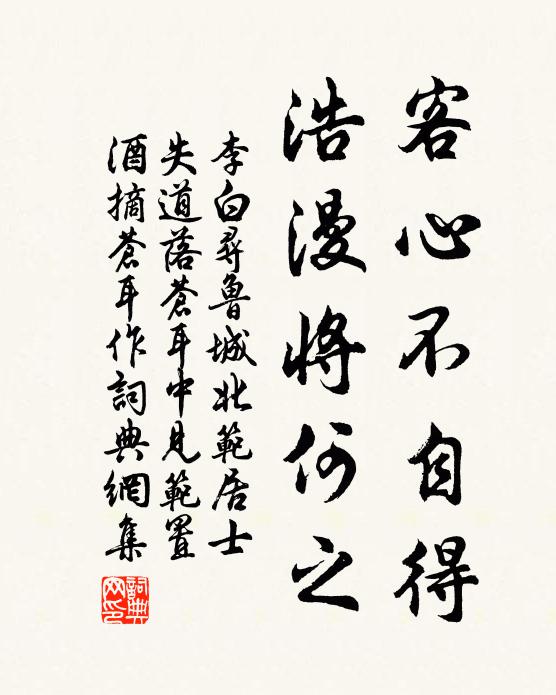 客心不自得
浩漫將何之
李白尋魯城北範居士
失道落蒼耳中見範置
酒摘蒼耳作詞典網集
詞典網印